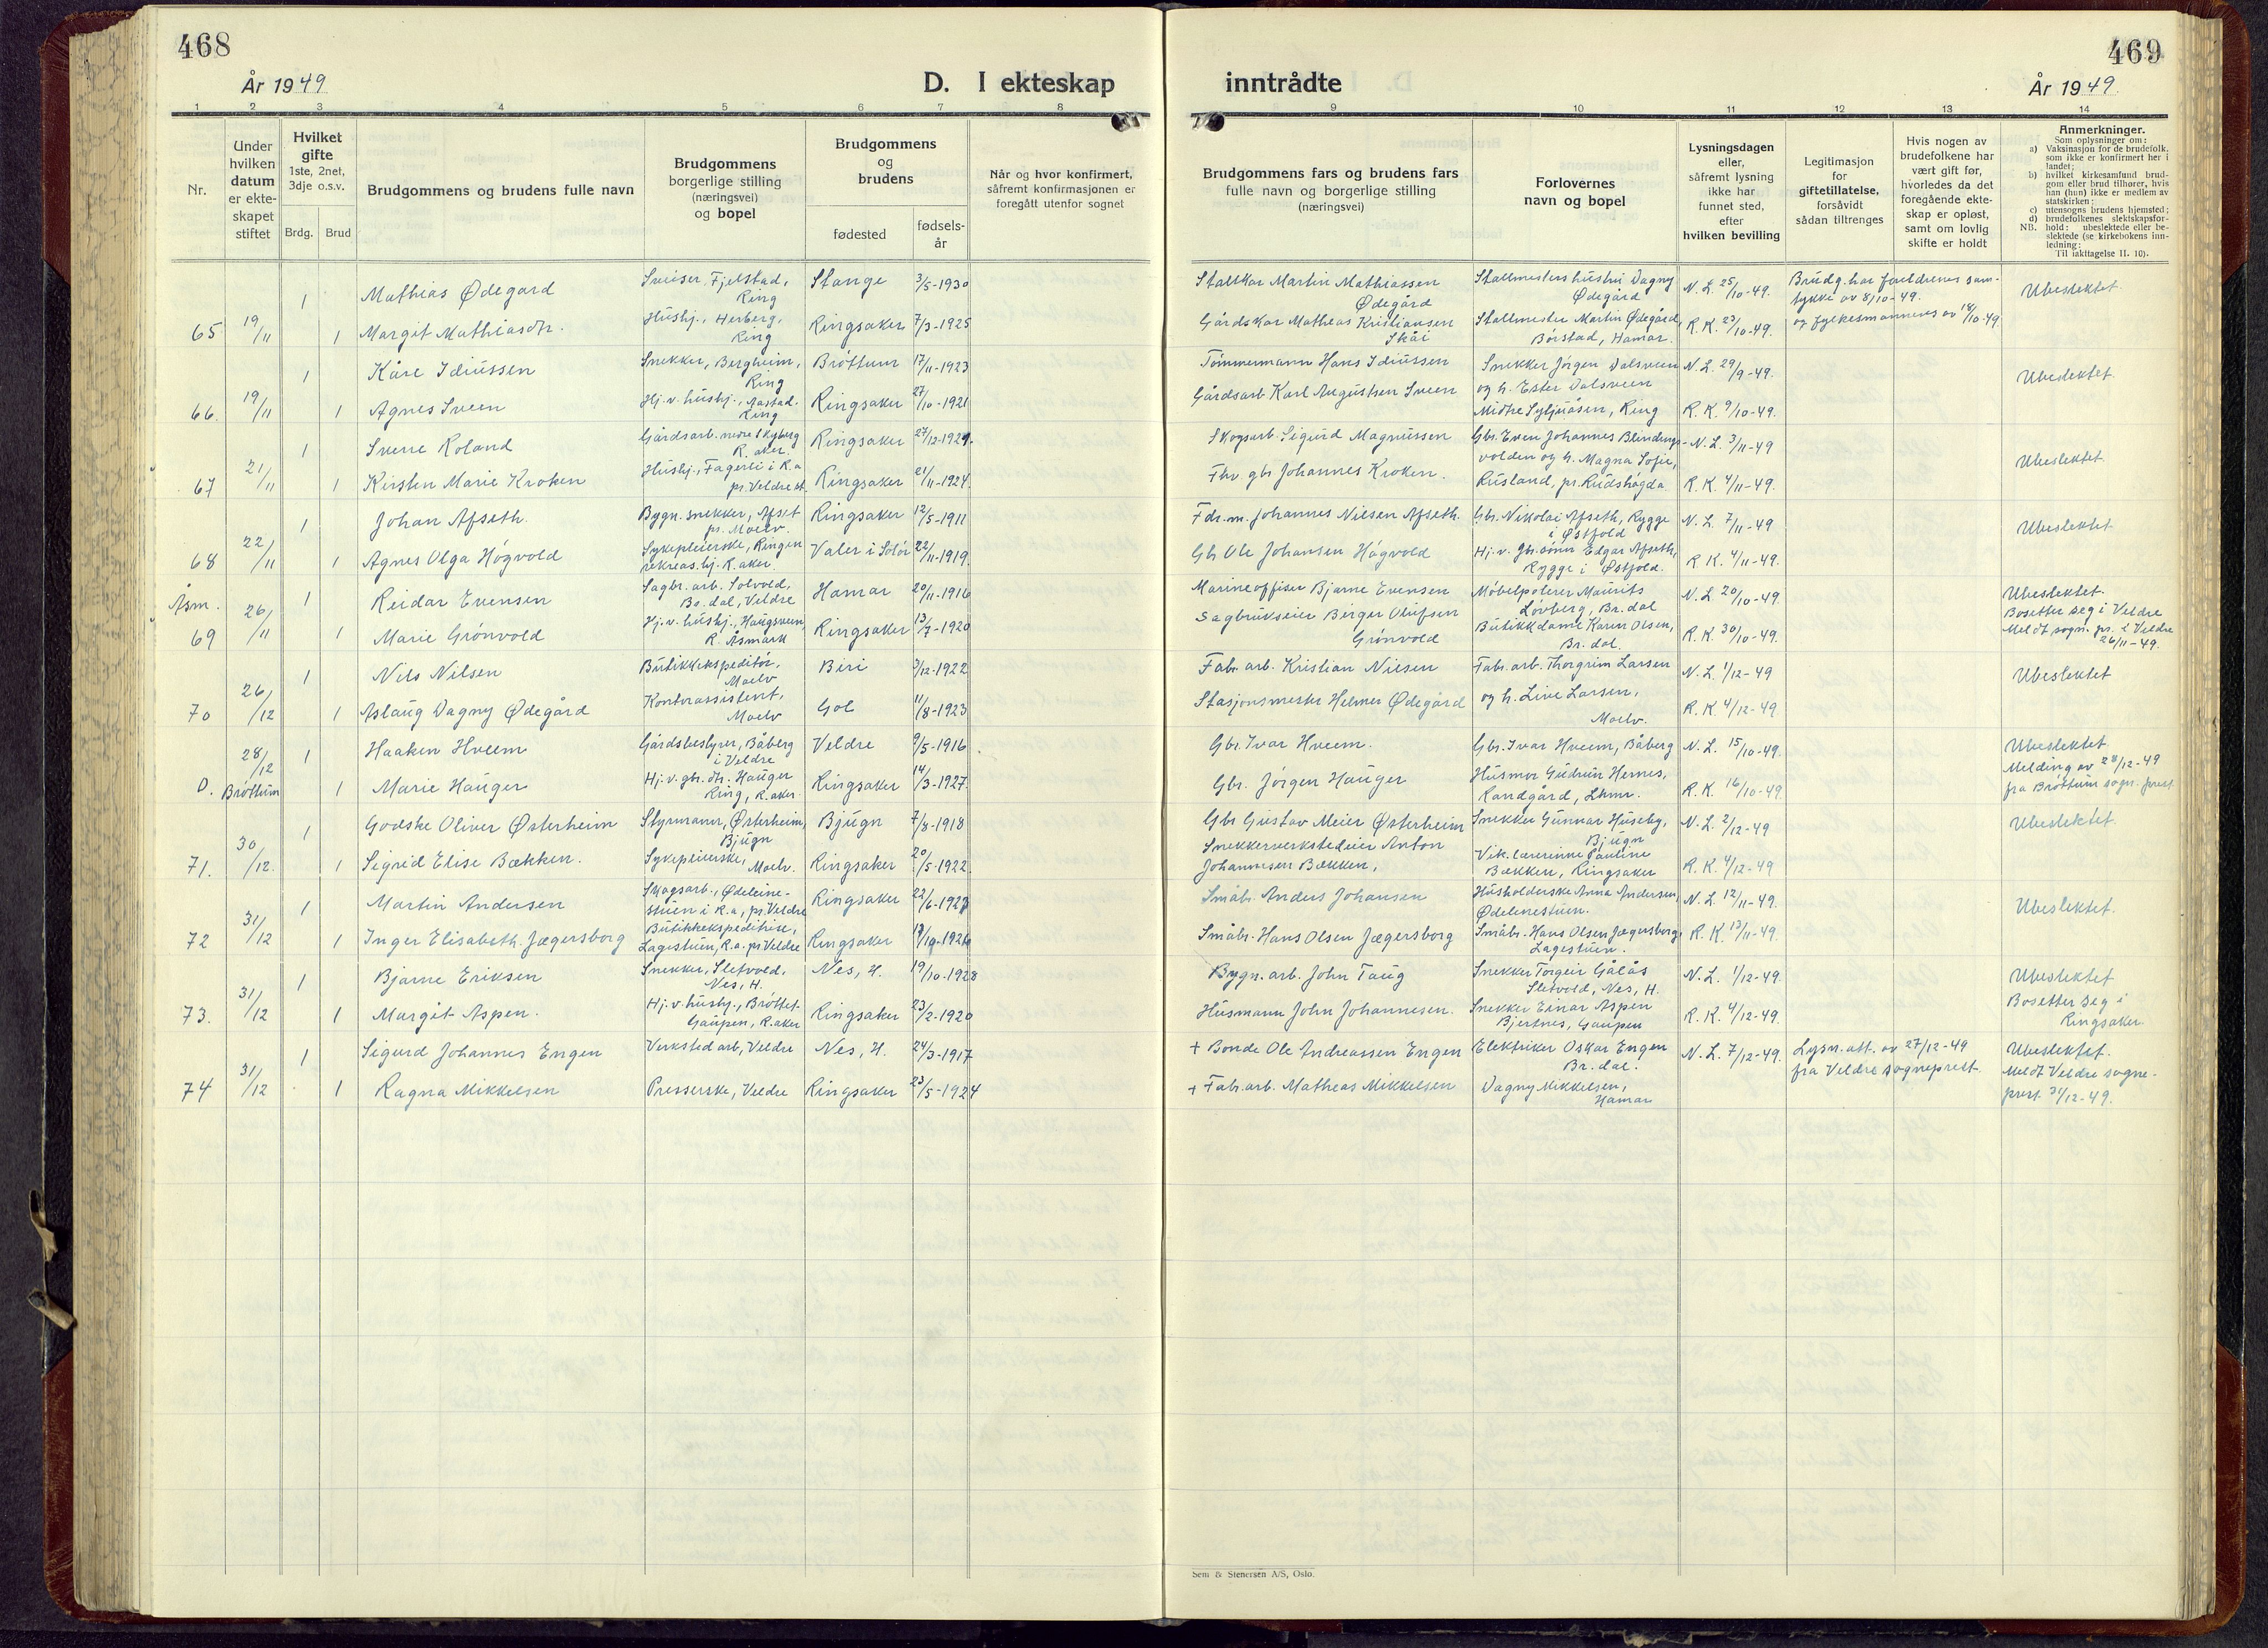 468
År 1949
D. I ekteskap
1 2 3 4 5 6 7 8
Nr.
Under hvilken datum er ekteskapet stiftet
Hvilket gifte 1ste, 2net, 3dje o.s.v.
Brdg. Brud
Brudgommens og brudens fulle navn
Brudgommens borgerlige stilling (næringsvei) og bopel
Brudgommens og brudens
fødested
fødselsår
Når og hvor konfirmert, såfremt konfirmasjonen er foregått utenfor sognet
1 Mathias Ødegård Sveiser, Fjelstad, Ring Stange 3/5-1930
65 19/11 1 Margit Mathiasdtr. Hushj., Herberg, Ring Ringsaker 7/3-1925
1 Kåre Idiussen Snekker, Bergheim, Ring Brøttum 17/11-1923
66. 19/11 1 Agnes Sveen Hj. v. hushj., Aastad. Ring Ringsaker 27/10-1921
1 Sverre Roland Gårdsarb. nedre Skyberg R.aker. Ringsaker 27/12-1929.
67 21/11 1 Kirsten Marie Kroken Hushj., Fagerli i R.a pr. Veldre st. Ringsaker 21/11-1924.
1 Johan Afseth. Bygn. snekker, Afset pr. Moelv. Ringsaker 12/5-1911
68 22/11 1 Agnes Olga Høgvold Sykepleierske, Ringen rekreas.hj. R.aker. Våler i Solør 22/11-1919.
Åsm. 1 Reidar Evensen Sagbr. arb. Solvold, Br.dal, Veldre Hamar 20/11-1916
69 26/11 1 Marie Grønvold Hj. v. hushj., Haugsveen, R. Åsmark Ringsaker 13/7-1920
1 Nils Nilsen Butikkekspeditør, Moelv Biri 3/12-1922
70 26/12 1 Aslaug Dagny Ødegård Kontorassistent, Moelv Gol 11/8-1923
28/12 1 Haaken Hveem Gårdsbestyrer, Båberg i Veldre Veldre 9/5-1916
D. Brøttum 1 Marie Hauger Hj. v. gbr. dtr. Hauger Ring, R.aker. Ringsaker 14/3-1927.
1 Godske Oliver Østerheim Styrmann, Østerheim, Bjugn Bjugn 7/8-1918
71. 30/12. 1 Sigrid Elise Bækken. Sykepleierske, Moelv. Ringsaker 20/5-1922.
1 Martin Andersen Skogsarb., Ødeleinestuen i R.a, pr. Veldre Ringsaker 22/6-1923
72 31/12 1 Inger Elisabeth Jægersborg Butikkekspeditrise, Lagestuen, R.a. pr Veldre Ringsaker
1 Bjarne Eriksen Snekker, Sletvold, Nes, H. Nes, H. 19/10-1928
73. 31/12 1 Margit Aspen. Hj. v. hushj., Brøttet Gaupen, R.aker Ringsaker 23/2-1920
1 Sigurd Johannes Engen Verkstedarb, Veldre Nes, H. 24/3-1917
74 31/12 1 Ragna Mikkelsen Presserske, Veldre Ringsaker 23/5-1924
469
inntrådte
År 1949.
9 10 11 12 13 14
Brudgommens fars og brudens fars fulle navn og borgerlige stilling (næringsvei)
Forlovernes navn og bopel
Lysningsdagen eller, såfremt lysning ikke har funnet sted, efter hvilken bevilling
Legitimasjon for giftetillatelse, forsåvidt sådan tiltrenges
Hvis nogen av brudefolkene har vært gift før, hvorledes da det foregående ekteskap er opløst, samt om lovlig skifte er holdt
Anmerkninger.
Som oplysninger om:
a) Vaksinasjon for de brudefolk, som ikke er konfirmert her i landet;
b) hvilket kirkesamfund brudgom eller brud tilhører, hvis han (hun) ikke er medlem av statskirken;
c) utensogns brudens hjemsted;
d) brudefolkenes slektskapsforhold: ubeslektede eller beslektede (se kirkebokens innledning:
NB. Til iakttagelse II. 10).
Stallkar Martin Mathiassen Ødegård Stallmesters hustru Dagny Ødegård N. L. 25/10-49. Brudg. har foreldrenes samtykke av 8/10-49. Ubeslektet
Gårdskar Matheas Kristiansen Skåi Stallmester Martin Ødegård, Børstad, Hamar. R. K. 23/10-49. og fylkesmannens av 18/10-49
Tømmermann Hans Idiussen Snekker Jørgen Dalsveen N. L. 29/9-49. Ubeslektet
Gårdsarb Karl Augustsen Sveen og h. Ester Dalsveen Midtre Syljuåsen, Ring R. K. 9/10-49.
Skogsarb. Sigurd Magnussen Gbr. Even Johannes Blindingsvolden og h. Magna Sofie, N. L. 3/11-49 Ubeslektet
Fhv gbr Johannes Kroken. Rusland, pr. Rudshøgda R. K. 4/11-49.
Fdr.m. Johannes Nilsen Afseth. Gbr. Nikolai Afseth, Rygge i Østfold N. L. 7/11-49 Ubeslektet
Gbr Ole Johansen Høgvold Hj. v. gbr.sønn Edgar Afseth, Rygge i Østfold. R. K. 4/11-49.
Marineoffiser Bjarne Evensen Møbelpolerer Maurits Løvberg, Br.dal N. L. 20/10-49. Ubeslektet. Bosetter seg i Veldre
Sagbrukseier Birger Olufsen Grønvold Butikkdame Karen Olsen, Br. dal. R. K. 30/10-49. Meldt sogn. pr. i Veldre 26/11-49.
Fabr. arb. Kristian Nilsen Fabr. arb. Thorgrim Larsen N. L. 1/12-49 Ubeslektet
Stasjonsmester Helmer Ødegård og h. Live Larsen, Moelv. R. K. 4/12-49
Gbr. Ivar Hveem. Gbr. Ivar Hveem, Båberg N. L. 15/10-49. Ubeslektet
Gbr. Jørgen Hauger Husmor Gudrun Hernes, Randgård, Lhmr. R. K. 16/10-49. Melding av 28/12-49 fra Brøttum sogn. prest
Gbr Gustav Meier Østerheim Snekker Gunnar Huseby, Bjugn N. L. 2/12-49 Ubeslektet.
Snekkerverkstedeier Anton Johannesen Bækken, Vik. lærerinne Pauline Bækken, Ringsaker R. K. 4/12-49
Småbr. Anders Johansen Husholderske Anna Andersen, Ødelenestuen. N. L. 12/11-49. Ubeslektet.
Småbr. Hans Olsen Jægersborg Småbr. Hans Olsen Jægersborg, Lagestuen. R. K. 13/11-49.
Bygn. arb. John Taug Snekker Torgeir Gålås Sletvold, Nes, H. N. L. 1/12-49. Ubeslektet
Husmann John Johannesen. Snekker Einar Aspen Bjertnes, Gaupen R. K. 4/12-49. Bosetter seg i Ringsaker.
+ Bonde Ole Andreassen Engen Elektriker Oskar Engen Br. dal. N. L. 7/12-49. Lysn. att. av 27/12-49 fra Veldre sogneprest. Ubeslektet.
+ Fabr. arb. Matheas Mikkelsen Dagny Mikkelsen, Hamar Meldt Veldre sogneprest 31/12-49.
Sem & Stenersen A/S, Oslo.